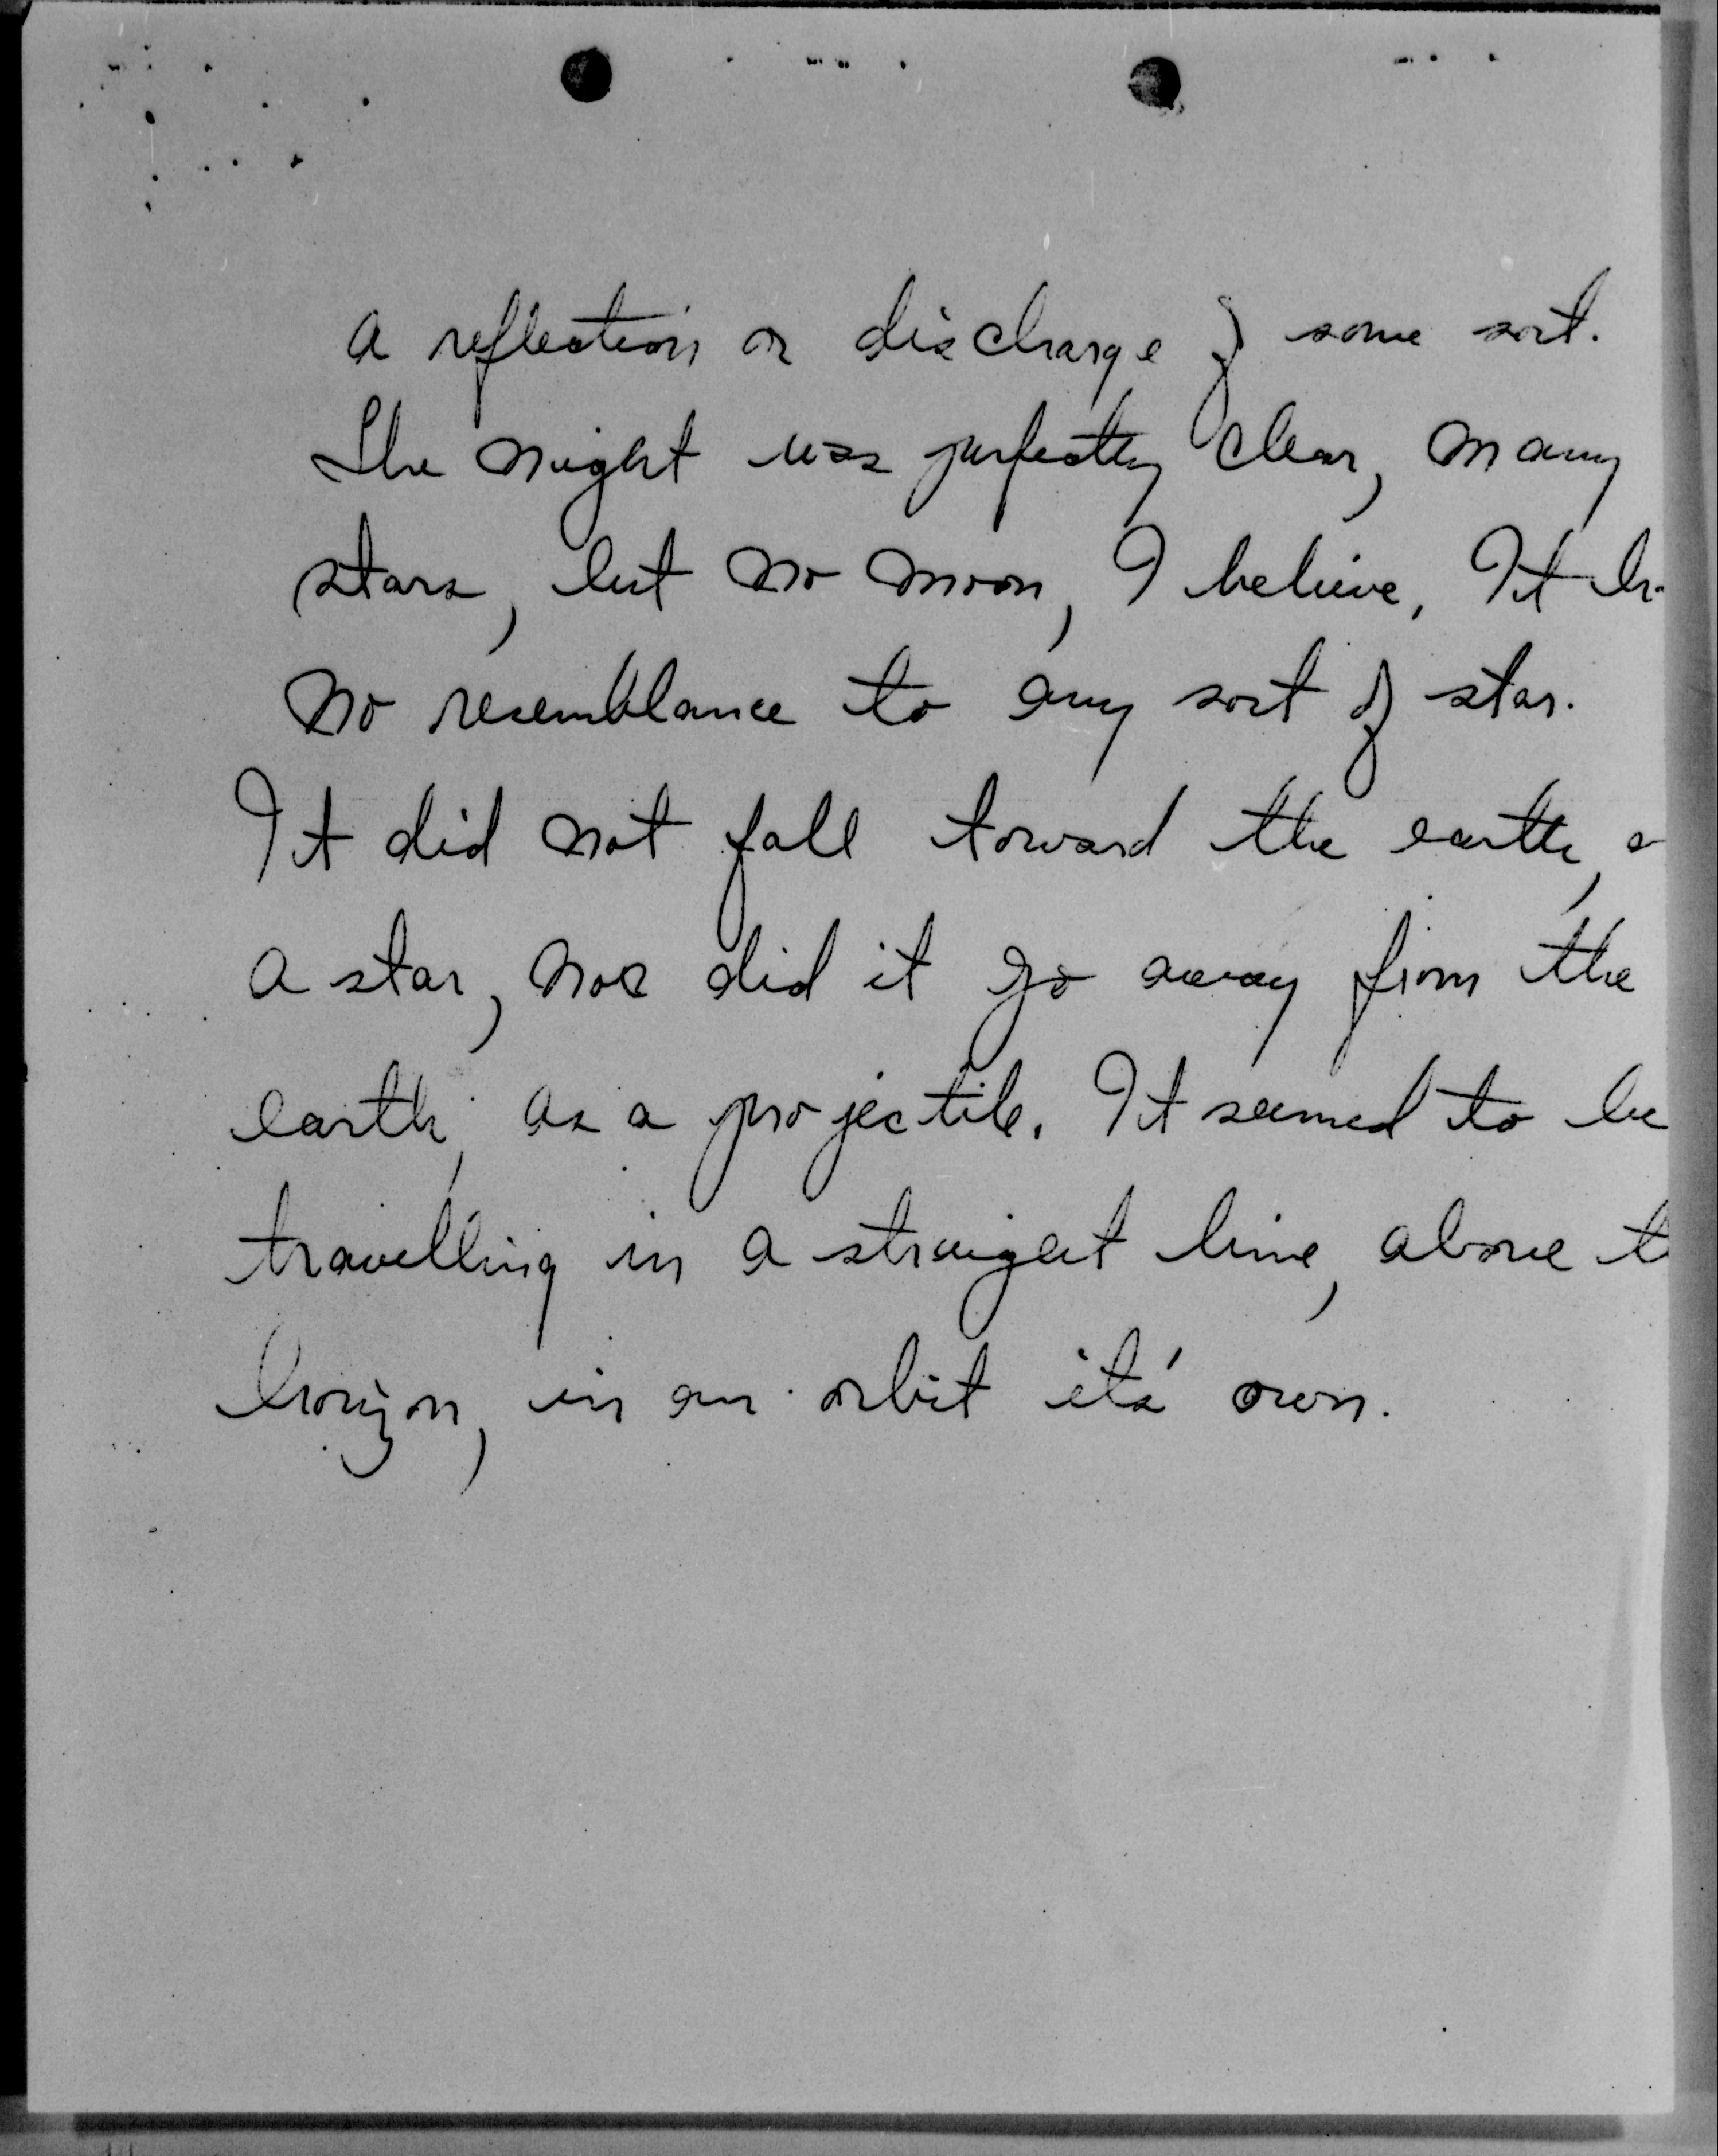 a reflection or discharge of some sort.
The night was perfectly clear, many
stars, but no moon, I believe. It
no resemblance to any sort of star.
It did not fall toward the earth,
a star, nor did it go away from the
earth, as a projectile. It seemed to be
travelling in a straight line, above
horizon, in an orbit its' own.